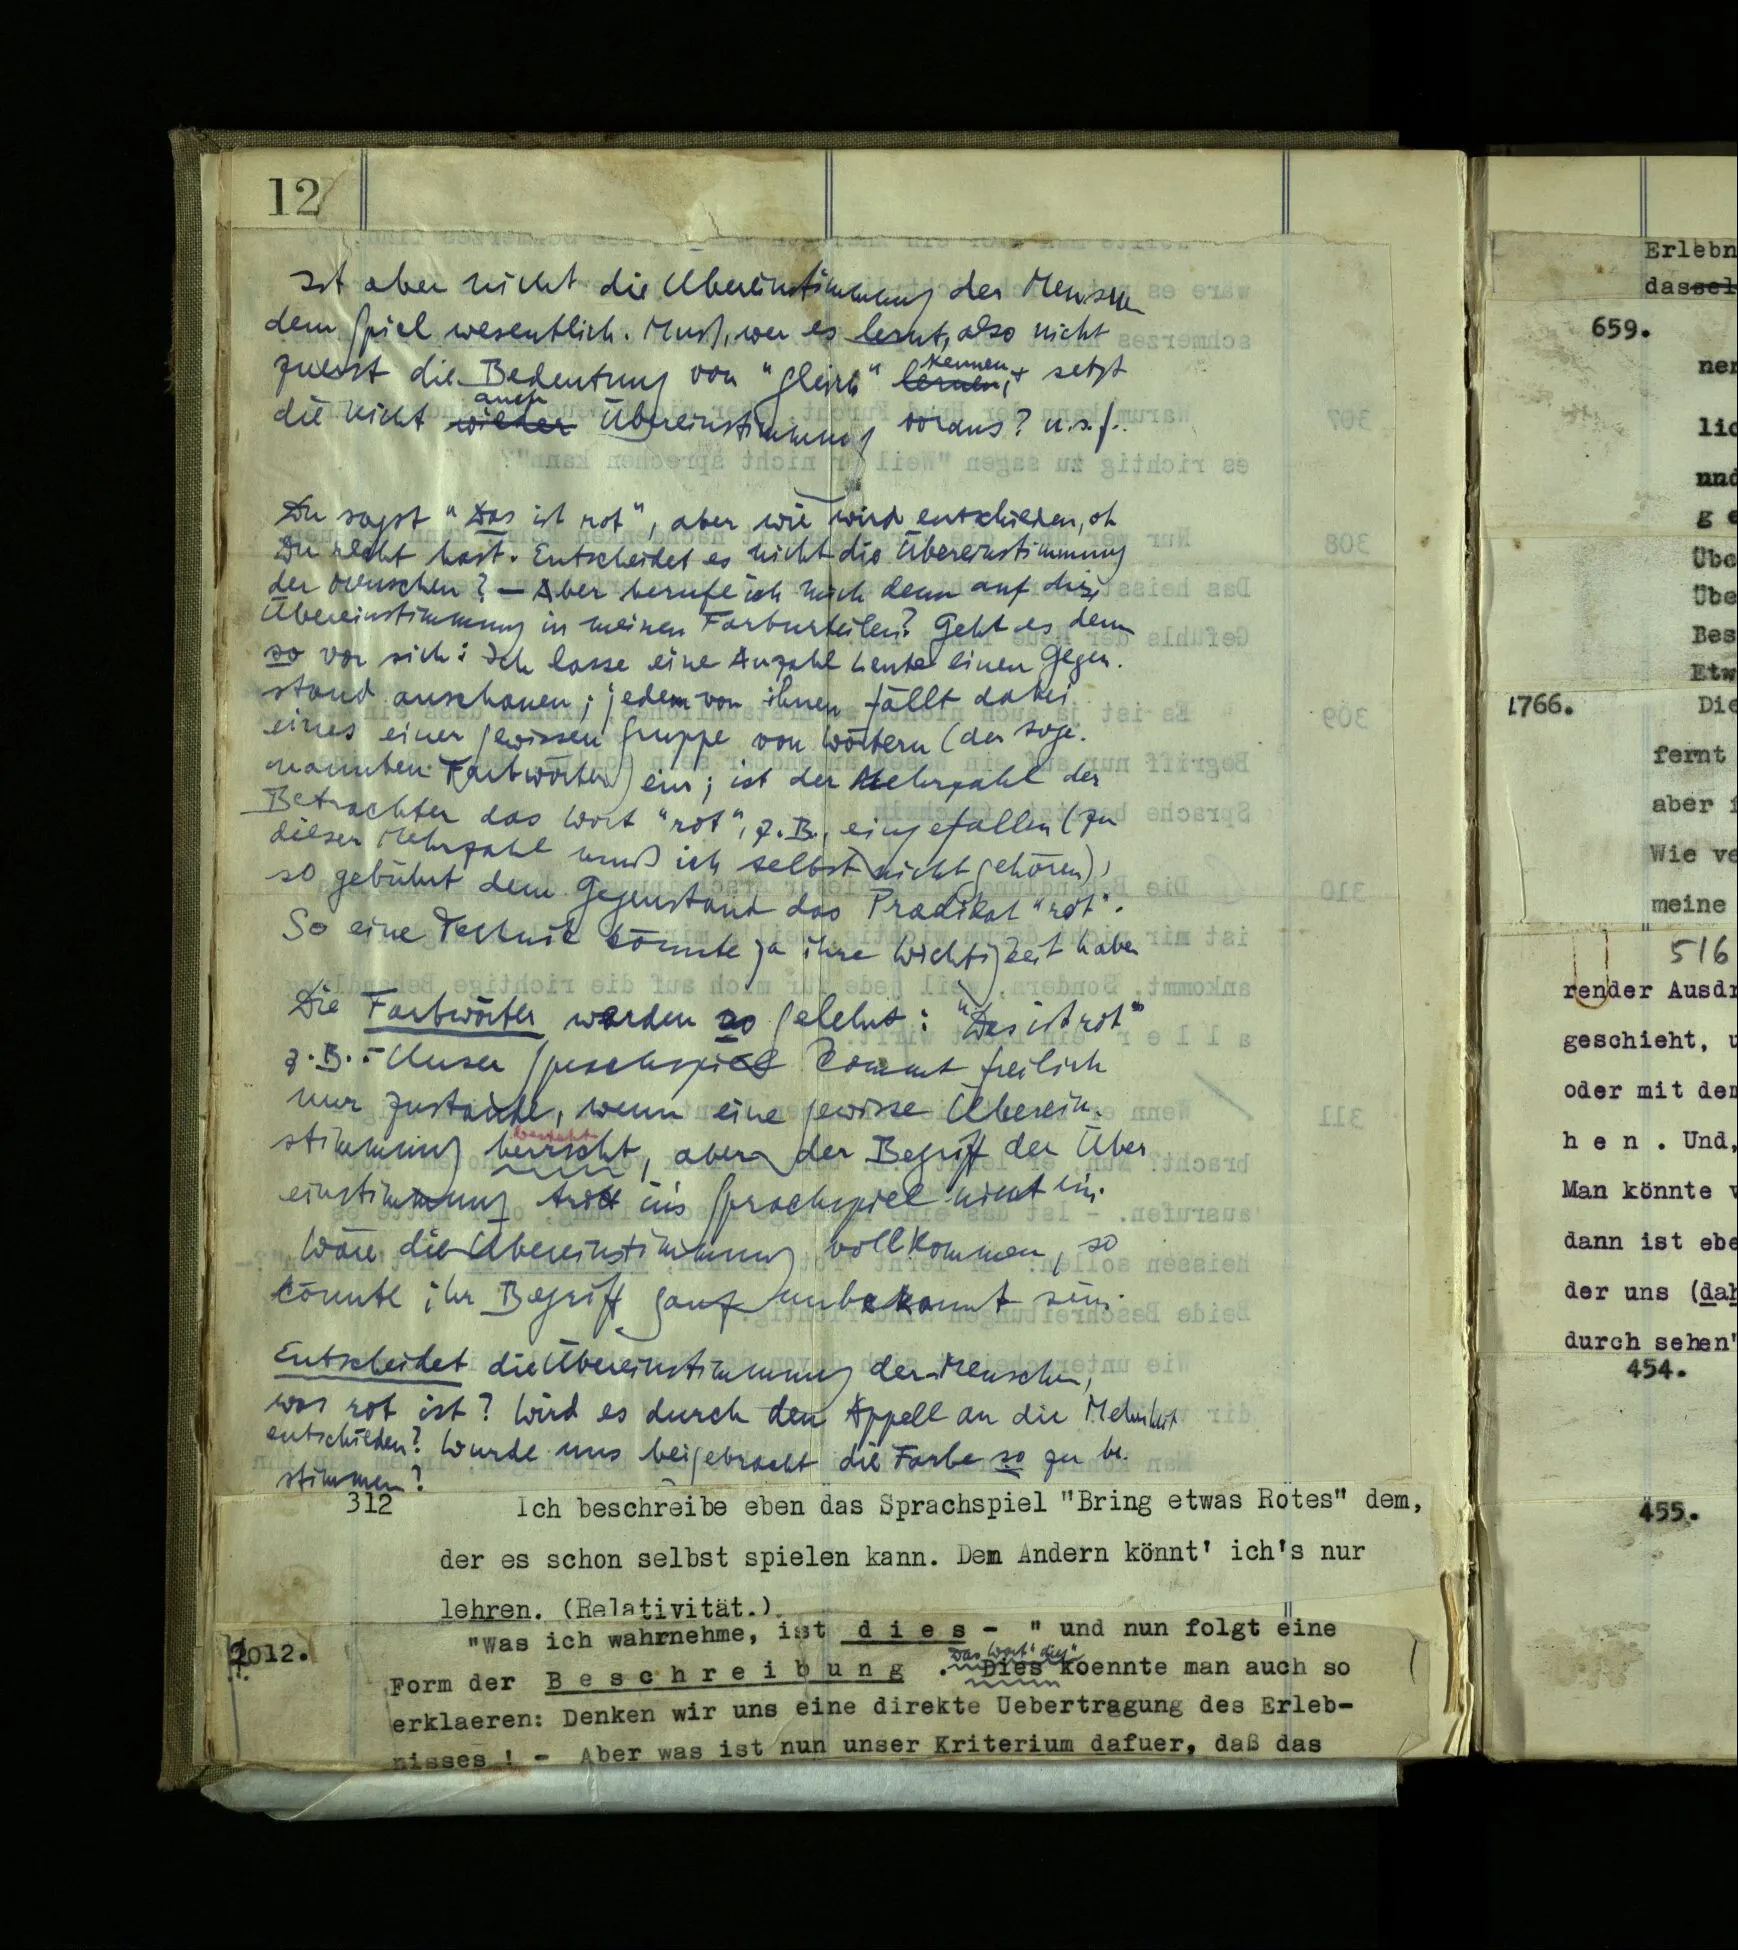 12
Ist aber nicht die Übereinstimmung der Menschen
dem Spiel wesentlich. Muß, wer es lernt, also nicht
zuerst die Bedeutung von "gleich" lernen, kennen, + setzt
die nicht wieder auch Übereinstimmung voraus? u.s.f..
Du sagst "Das ist rot", aber wie wird entschieden, ob
Du recht hast. Entscheidet es nicht die Übereinstimmung
der Menschen? — Aber berufe ich mich denn auf diese
Übereinstimmung in meinen Farburteilen? Geht es denn
so vor sich: Ich lasse eine Anzahl Leute einen Gegen-
stand anschauen; jedem von ihnen fällt dabei
eines einer gewissen Gruppe von Wörtern (der soge-
nannten Farbwörter) ein; ist der Mehrzahl der
Betrachter das Wort "rot", z.B., eingefallen (zu
dieser Mehrzahl muß ich selbst nicht gehören),
so gebührt dem Gegenstand das Prädikat "rot".
So eine Technik könnte ja ihre Wichtigkeit haben
Die Farbwörter werden so gelehrt: "Das ist rot"
z.B. - Unser Sprachspiel kommt freilich
nur zustande, wenn eine gewisse Überein-
stimmung herrscht, besteht aber der Begriff der Über
einstimmung tritt ins Sprachspiel nicht ein.
Wäre die Übereinstimmung vollkommen, so
könnte ihr Begriff ganz unbekannt sein.
Entscheidet die Übereinstimmung der Menschen,
was rot ist? Wird es durch den Appell an die Mehrheit
entschieden? Wurde uns beigebracht die Farbe so zu be-
stimmen?
312 Ich beschreibe eben das Sprachspiel "Bring etwas Rotes" dem,
der es schon selbst spielen kann. Dem Andern könnt' ich's nur
lehren. (Relativität.)
2012. "Was ich wahrnehme, ist d i e s - " und nun folgt eine
Form der B e s c h r e i b u n g . Das Wort "dies" Dies koennte man auch so
erklaeren: Denken wir uns eine direkte Uebertragung des Erleb-
nisses! - Aber was ist nun unser Kriterium dafuer, daß das
Erlebn
dassel
659.
ner
lic
und
g e
Übe
Übe
Bes
Etw
1766. Die
fernt
aber
Wie ve
meine
516
render Ausdr
geschieht, u
oder mit dem
h e n . Und,
Man könnte v
dann ist ebe
der uns (dah
durch sehen"
454.
455.